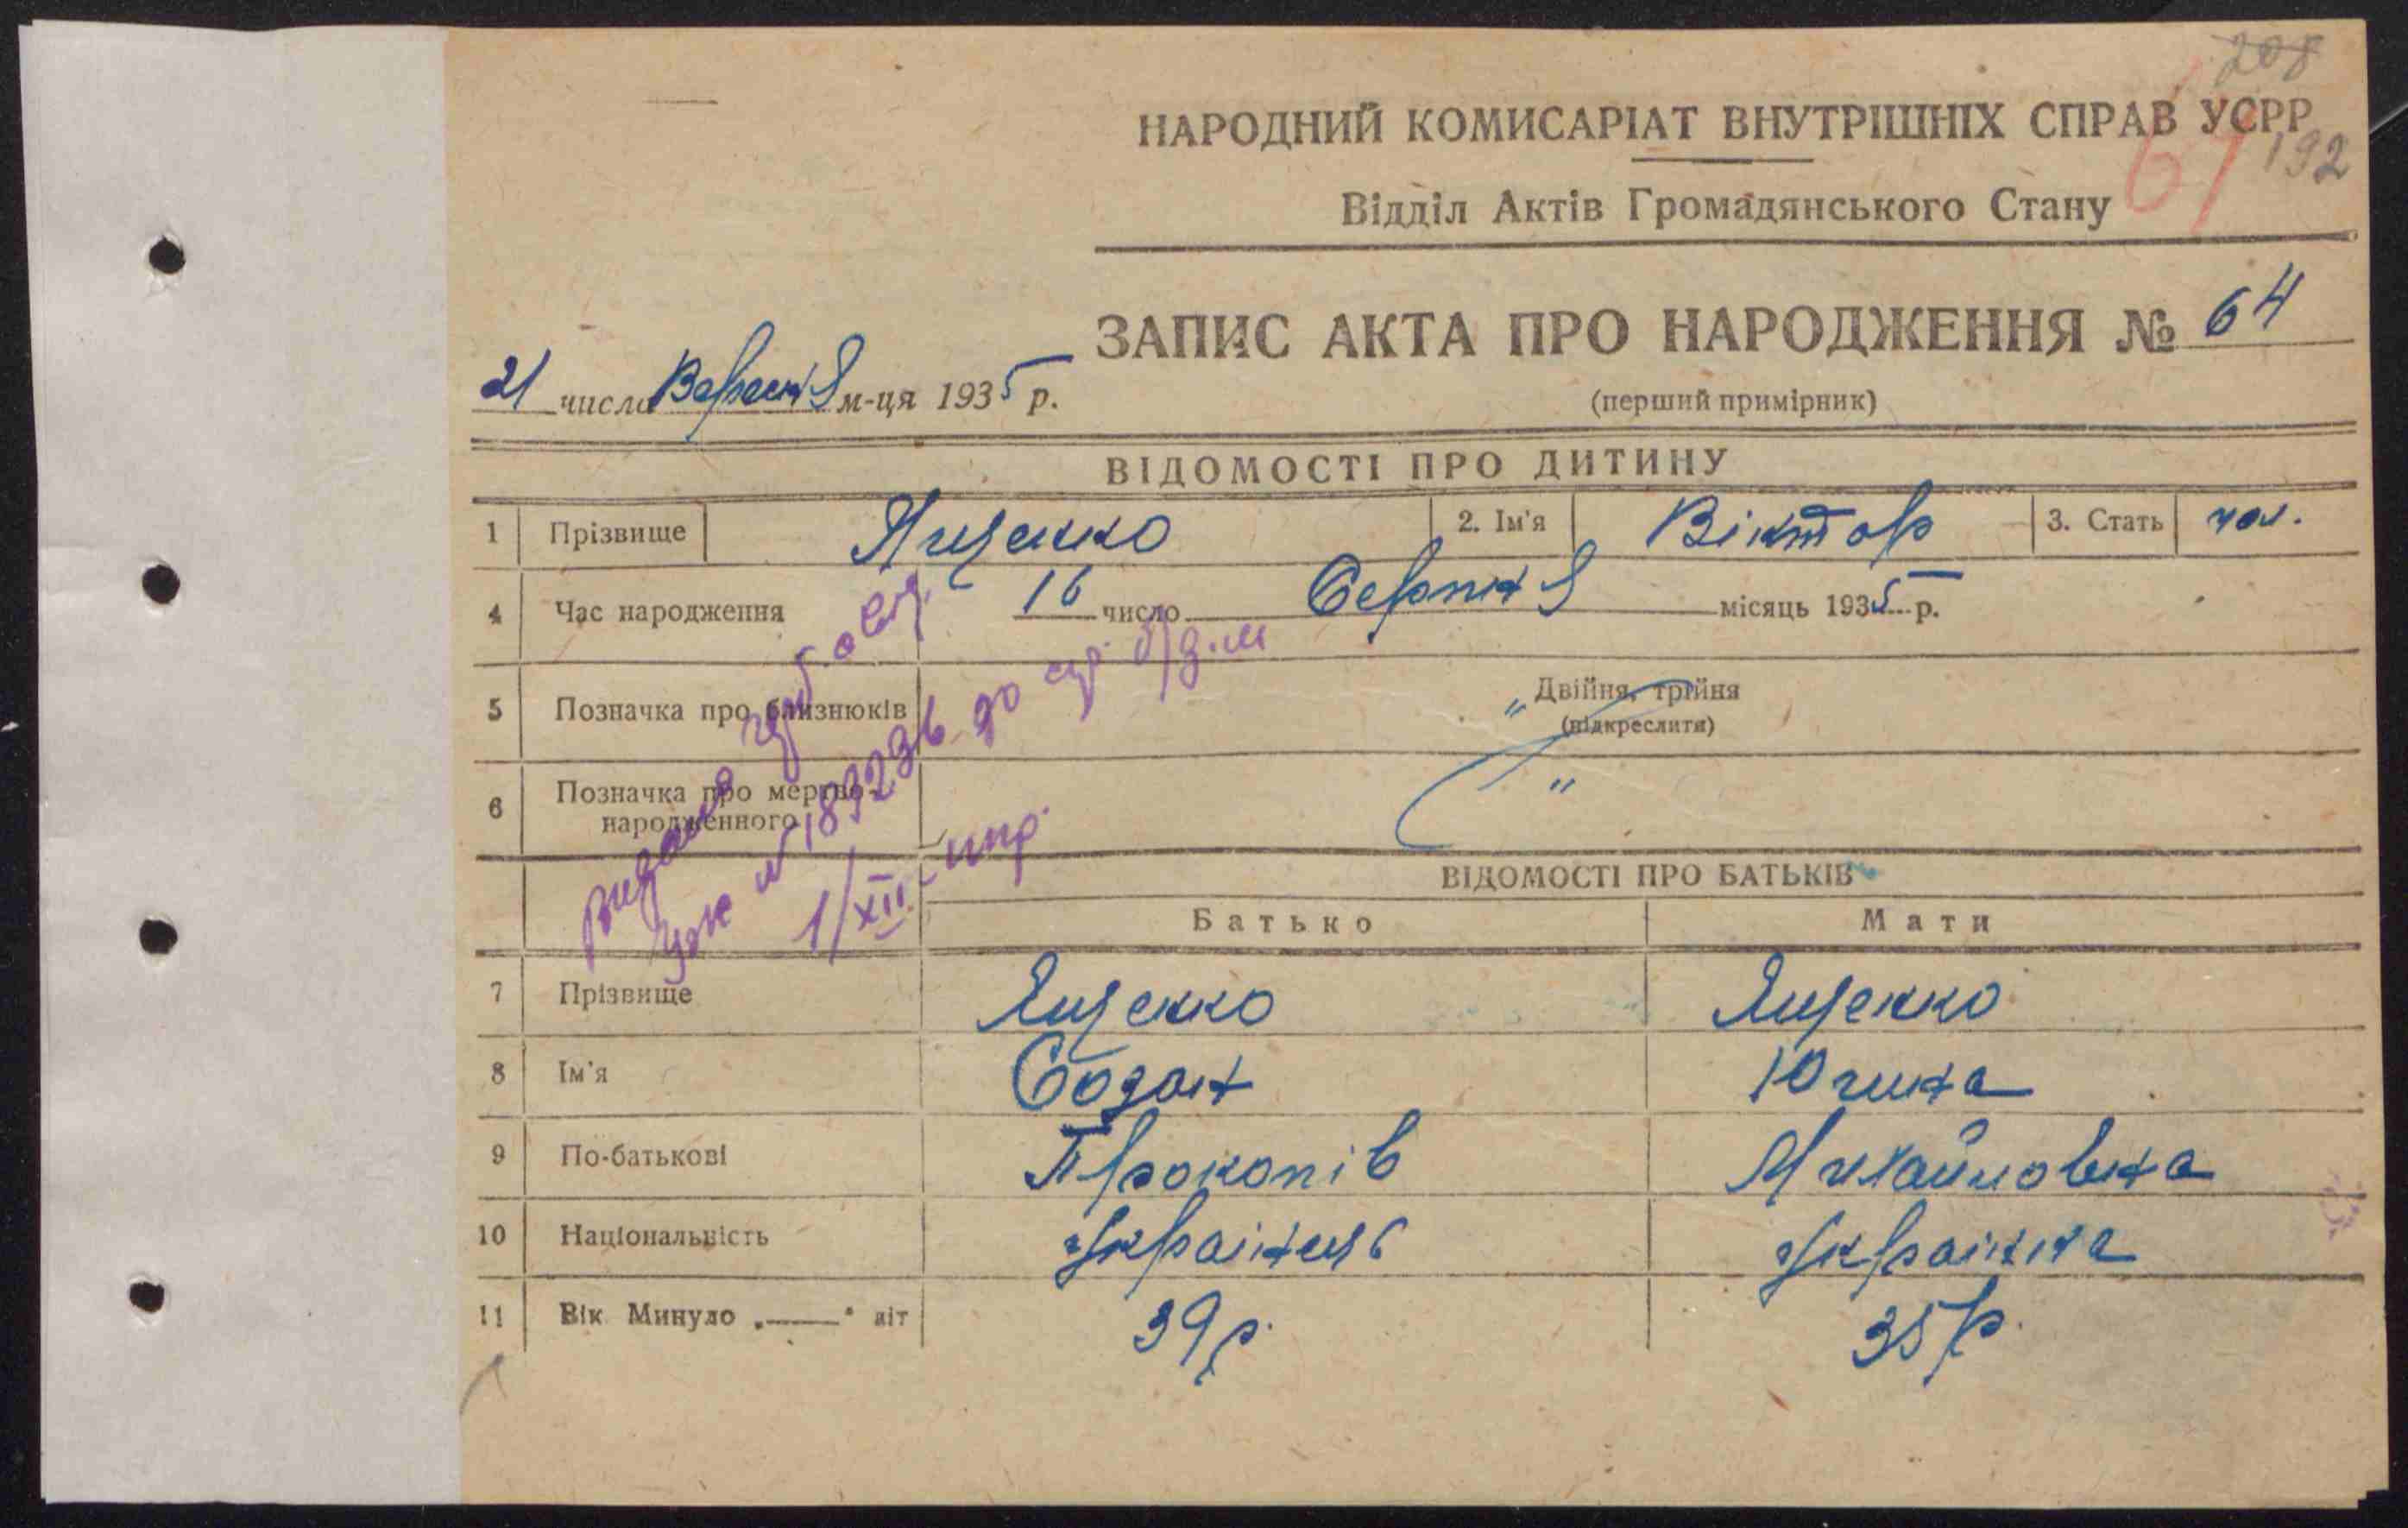 208
НАРОДНИЙ КОМИСАРІАТ ВНУТРІШНІХ СПРАВ УСРР
61 192
Відділ Актів Громадянського Стану
ЗАПИС АКТА ПРО НАРОДЖЕННЯ № 64
21 числа Вересня м-ця 1935 р.
(перший примірник)
ВІДОМОСТІ ПРО ДИТИНУ
1 Прізвище Ященко 2. Ім'я Віктор 3. Стать чол.
4 Час народження 16 число Серпня місяць 1935 р.
5 Позначка про близнюків Двійня, трійня
(підкреслити)
6 Позначка про мертво-
народженного "
1/XII
ВІДОМОСТІ ПРО БАТЬКІВ
Батько Мати
7 Прізвище Ященко Ященко
8 Ім'я Созон Югина
9 По-батькові Прокопів Михайловна
10 Національність Українець Українка
11 Вік Минуло „——" літ 39 р. 35 р.